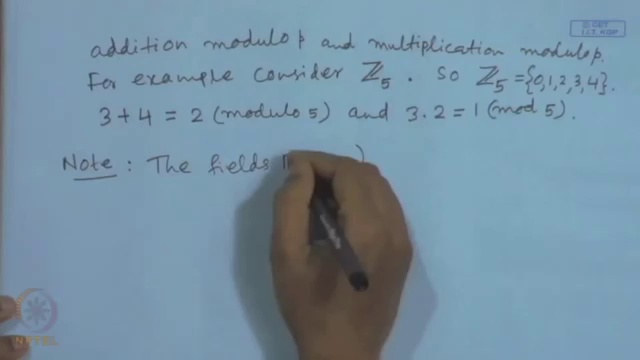 © CET
I.I.T. KGP
addition modulo p and multiplication modulo p.
For example consider ℤ₅ . So ℤ₅ = {0,1,2,3,4}.
3 + 4 = 2 (modulo 5) and 3 . 2 = 1 (mod 5) .
Note : The fields
NPTEL